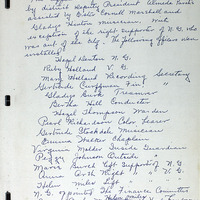 by district Deputy President Almeda
assisted by Sister Cornell Marshall and
Gladys Horton musician. with
exception of the right supporter of N.G. who
was out of the city. The following officers were
installed
Hazel Benton N.G.
Ruby Holland V.G.
Mary Holland Recording Secretary
Gertrude Curffman Fin "
Gladys Buck Treasurer
Bertha Hill Conductor
Hazel Thompson Warden
Pearl Richardson Color Bearer
Gertrude Stockdale Musician
Emma Walker Chaplain
Virginia Malder Inside Guardian
Johnson Outside "
Left Supporter N.G.
Anna Roth Right " V.G.
Helen Miles Left " "
N.G. appointed The Finance Committee